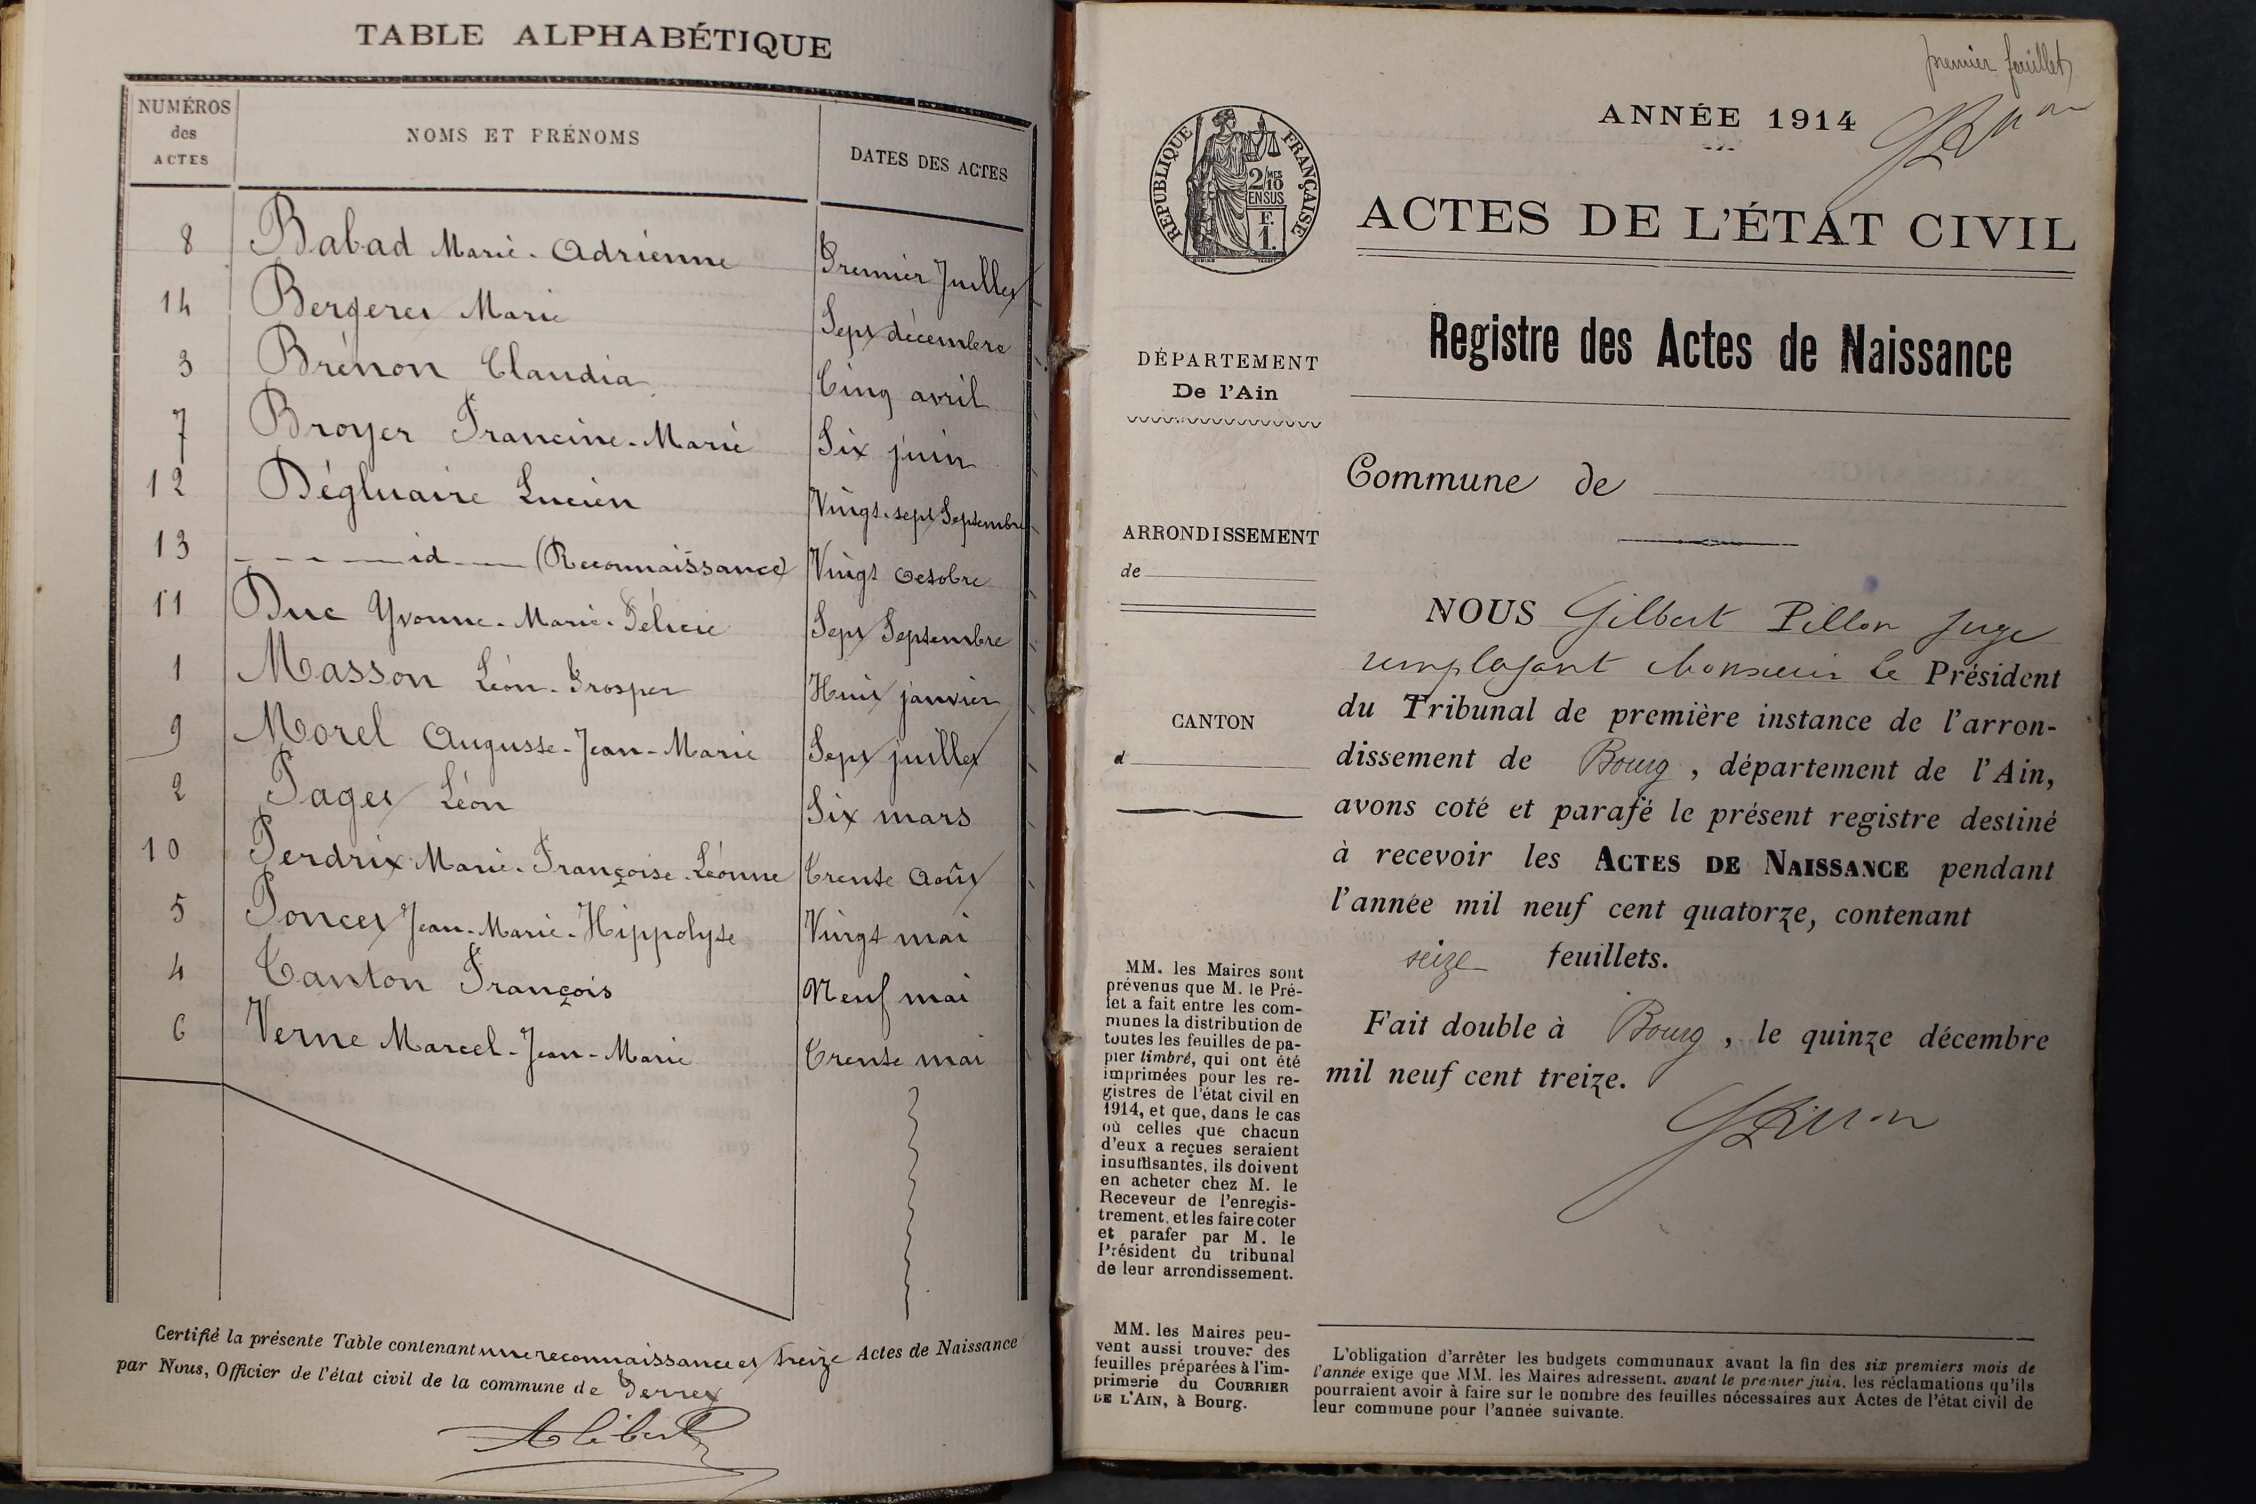 TABLE ALPHABÉTIQUE
NUMÉROS des ACTES
NOMS ET PRÉNOMS
DATES DES ACTES
8 Babad Marie-Adrienne Premier Juillet
14 Bergeret Marie Sept décembre
3 Brénon Claudia Cinq avril
7 Broyer Francine-Marie Six juin
12 Dégluaire Lucien Vingt-sept Septembre
13 id (Reconnaissance) Vingt Octobre
11 Duc Yvonne-Marie-Félicie Sept Septembre
1 Masson Léon-Prosper Huit janvier
9 Morel Auguste-Jean-Marie Sept juillet
2 Paget Léon Six mars
10 Perdrix Marie-Françoise-Léonne Trente Août
5 Poncet Jean-Marie-Hippolyte Vingt mai
4 Tanton François Neuf mai
6 Verne Marcel-Jean-Marie Trente mai
Certifié la présente Table contenant une reconnaissance et treize Actes de Naissance
par Nous, Officier de l'état civil de la commune de
premier feuillet
ANNÉE 1914
RÉPUBLIQUE FRANÇAISE
2/10 MES
EN SUS
F.
1.
ACTES DE L'ÉTAT CIVIL
Registre des Actes de Naissance
DÉPARTEMENT
De l'Ain
Commune de
ARRONDISSEMENT
de
CANTON
d
NOUS Gilbert Pillon Juge
remplaçant Monsieur le Président
du Tribunal de première instance de l'arron-
dissement de Bourg, département de l'Ain,
avons coté et parafé le présent registre destiné
à recevoir les ACTES DE NAISSANCE pendant
l'année mil neuf cent quatorze, contenant
seize feuillets.
Fait double à Bourg, le quinze décembre
mil neuf cent treize.
GPillon
MM. les Maires sont
prévenus que M. le Pré-
fet a fait entre les com-
munes la distribution de
toutes les feuilles de pa-
pier timbré, qui ont été
imprimées pour les re-
gistres de l'état civil en
1914, et que, dans le cas
où celles que chacun
d'eux a reçues seraient
insuffisantes, ils doivent
en acheter chez M. le
Receveur de l'enregis-
trement, et les faire coter
et parafer par M. le
Président du tribunal
de leur arrondissement.
MM. les Maires peu-
vent aussi trouver des
feuilles préparées à l'im-
primerie du COURRIER
DE L'AIN, à Bourg.
L'obligation d'arrêter les budgets communaux avant la fin des six premiers mois de
l'année exige que MM. les Maires adressent, avant le premier juin, les réclamations qu'ils
pourraient avoir à faire sur le nombre des feuilles nécessaires aux Actes de l'état civil de
leur commune pour l'année suivante.